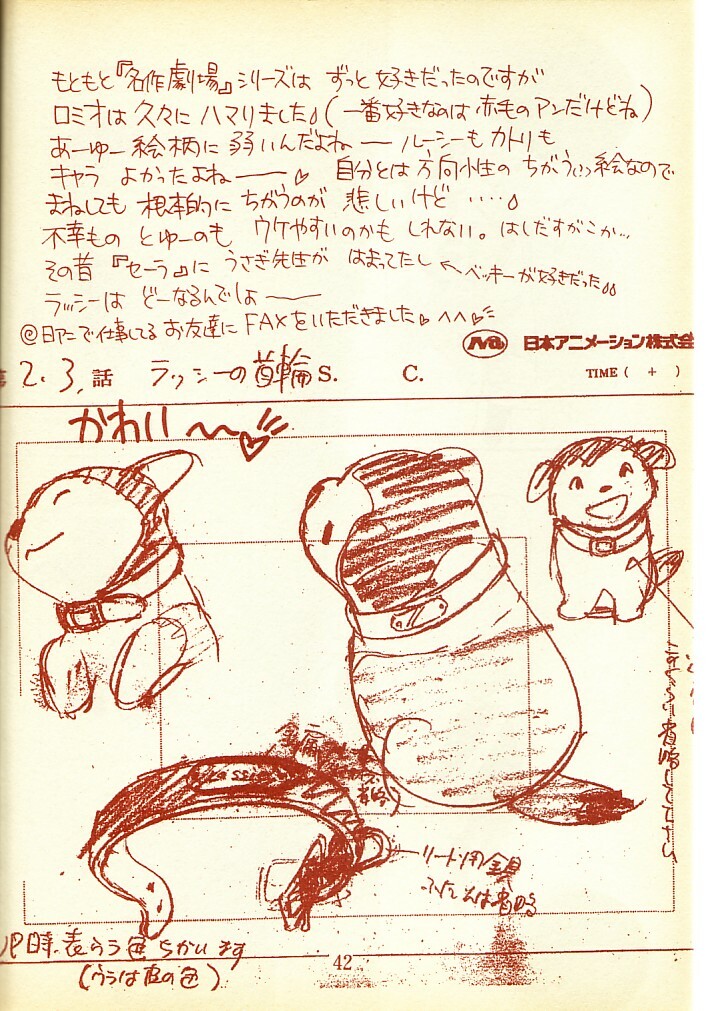 もともと『名作劇場』シリーズは ずっと好きだったのですが
ロミオは久々に ハマりました。(一番好きなのは赤毛のアンだけどね)
あーゆー絵柄に弱いんだよね ー ルーシーもカトリも
キャラ よかったよねー♡ 自分とは方向性の ちがう絵なので
まねしても 根本的に ちがうのが 悲しいけど ‥‥。
不幸もの とゆーのも ウケやすいのかも しれない。はしだすがこか…
その昔『セーラ』に うさぎ先生が はまってたし ← ベッキーが好きだった。。
ラッシーは どーなるんでしょー
@日アニで仕事してる お友達に FAXをいただきました♡ ^^♡
日本アニメーション株式会
2.3.話 ラッシーの首輪 S. C. TIME ( + )
かわい〜〜♡
金属
リード用金具
ふだんは省略
表うら色ちがいます
(ウラは皮の色)
42